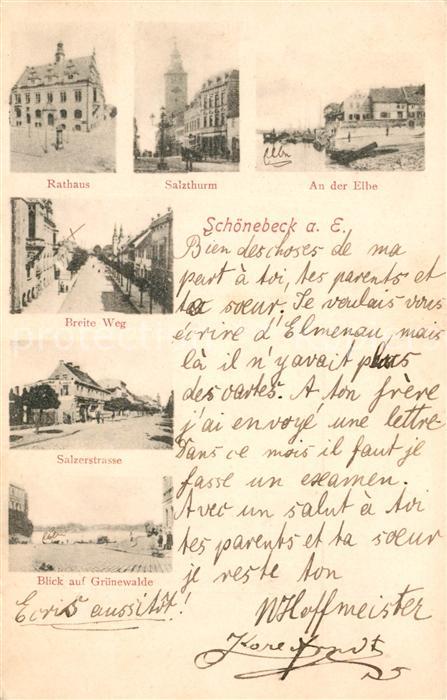 Rathaus
Salzthurm
Elbe
An der Elbe
Schönebeck a. E.
Breite Weg
Salzerstrasse
Elbe
Blick auf Grünewalde
Bien des choses de ma
part à toi, tes parents et
ta soeur. Je voulais vous
écrire d'Elmenau, mais
là il n'y avait plus
des cartes. A ton frère
j'ai envoyé une lettre
Dans ce mois il faut je
fasse un examen.
Avec un salut à toi
tes parents et ta soeur
je reste ton
WHoffmeister
Ecris aussitôt!